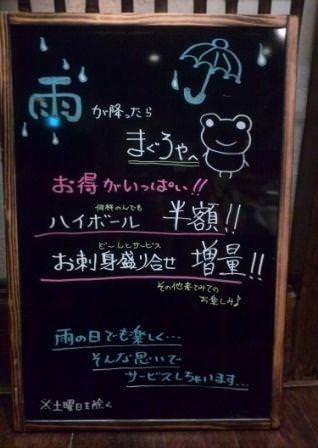 雨が降ったら
まぐろやへ
お得がいっぱい!!
何杯のんでも
ハイボール 半額!!
ど〜んとサービス
お刺身盛り合せ 増量!!
その他来てみての
お楽しみ♪
雨の日でも楽しく…
そんな思いで
サービスしちゃいます…
※土曜日を除く